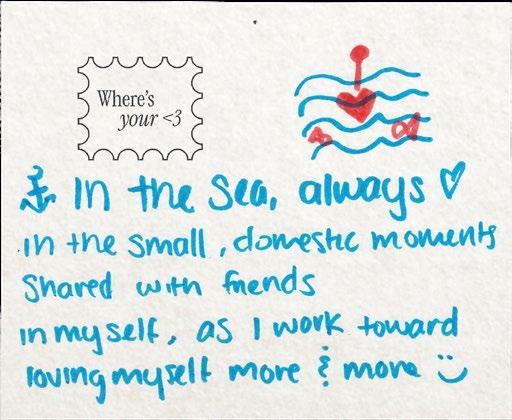 Where's
your <3
In the Sea, always ♡
in the small, domestic moments
Shared with friends
in myself, as I work toward
loving myself more & more :)